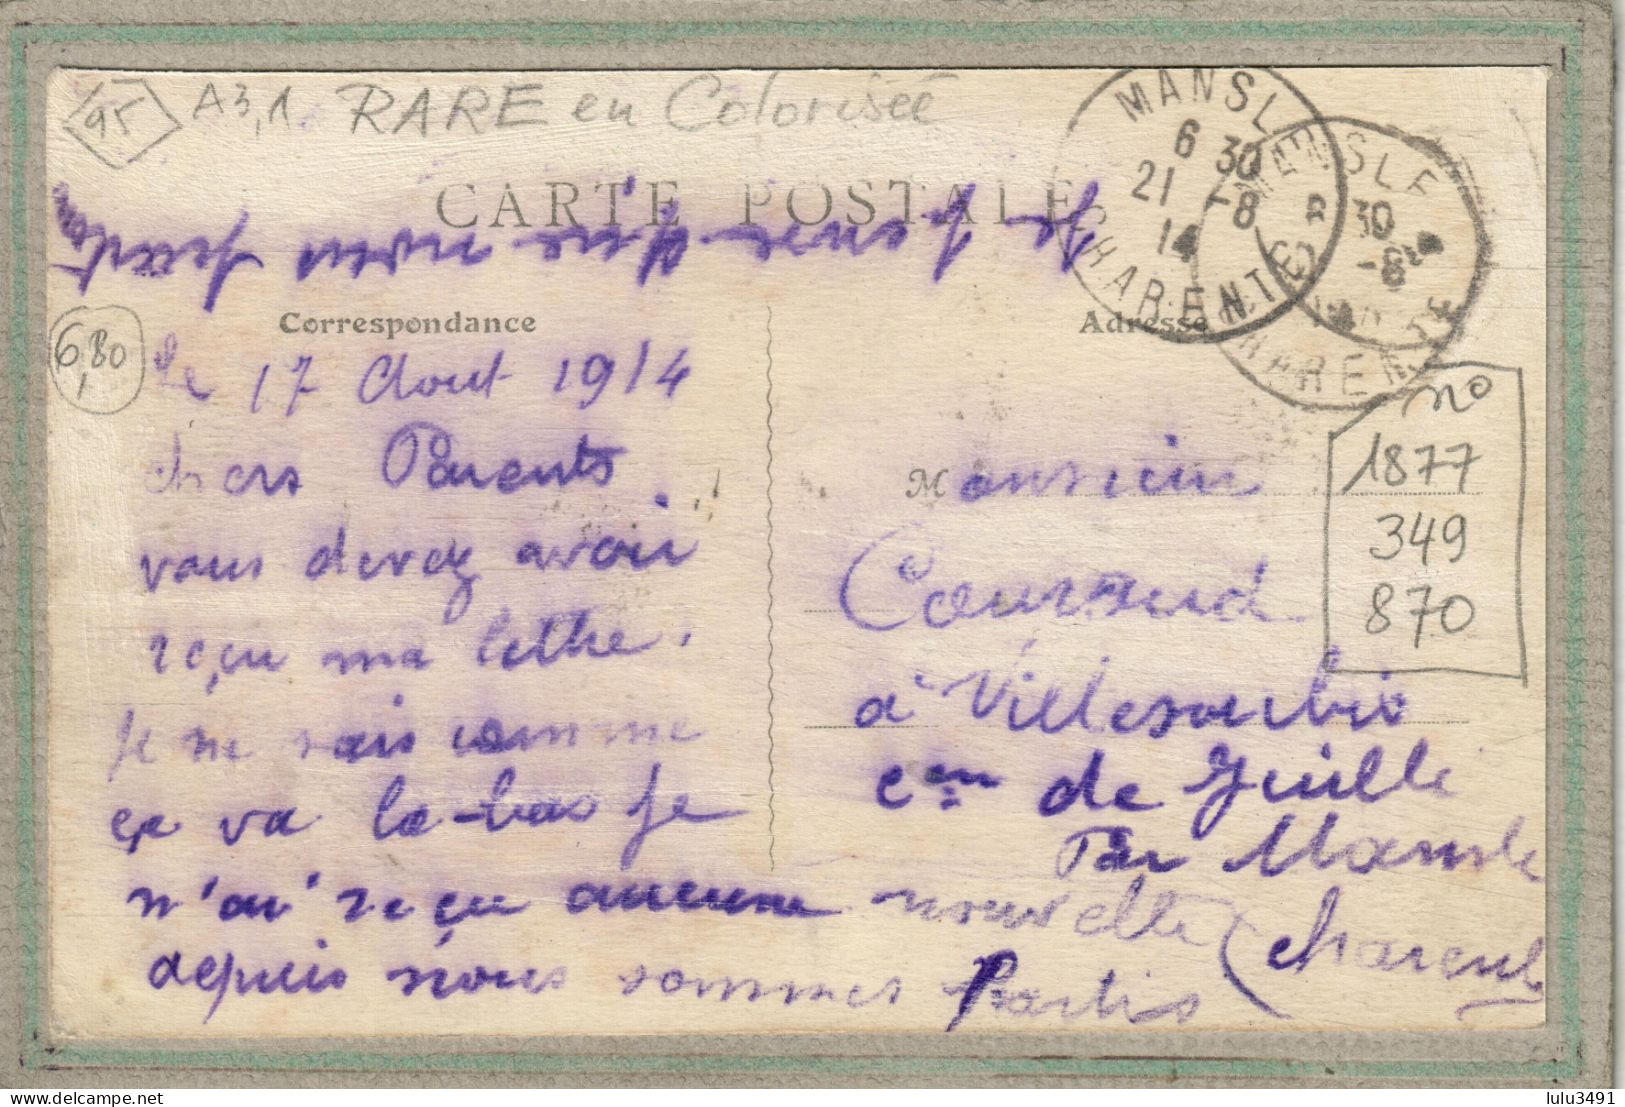 95
A3,1 RARE en Colorisée
CARTE POSTALE
Correspondance
Adresse
MANSLE
6 30
21 -8
14
CHARENTE
MANSLE
30
-8
CHARENTE
6,80
le 17 Aout 1914
chers Parents
vous devez avoir
reçu ma lettre.
Je ne sais comme
ça va la-bas Je
n'ai reçu aucune nouvelle
depuis nous sommes Partis
Je
Monsieur
Couraud
à Villesoubis
cne de Juillé
Par Mansle
(Charente
no
1877
349
870
lulu3491